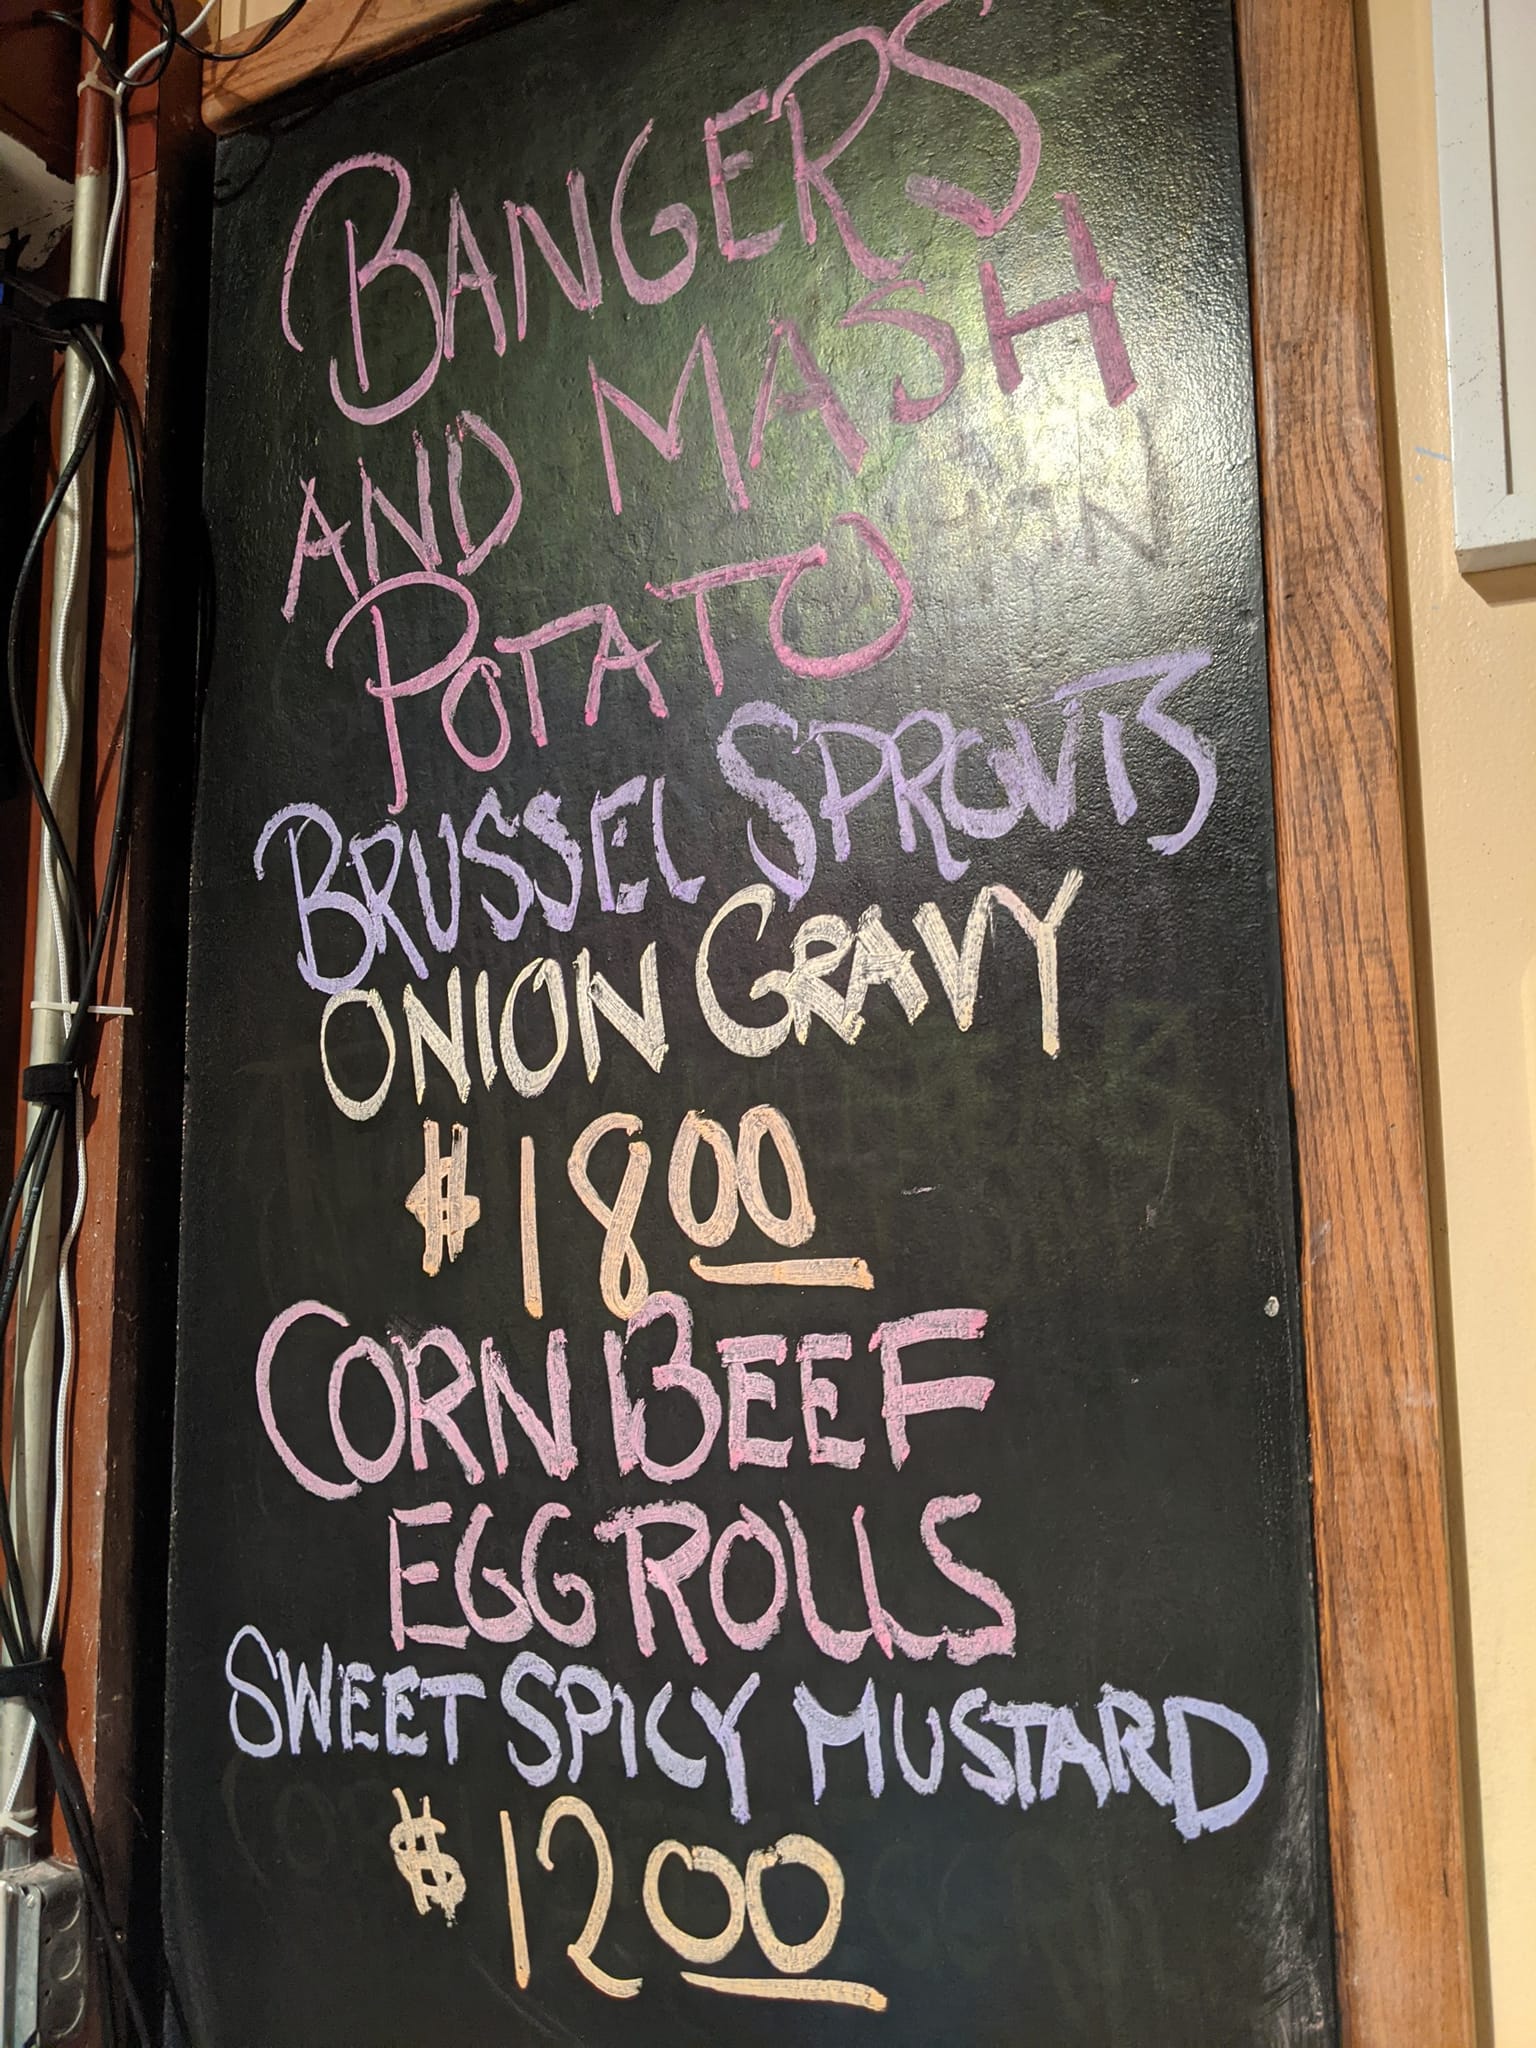 BANGERS
AND MASH
POTATO
BRUSSEL SPROUTS
ONION GRAVY
$18 00
CORN BEEF
EGG ROLLS
SWEET SPICY MUSTARD
$12 00